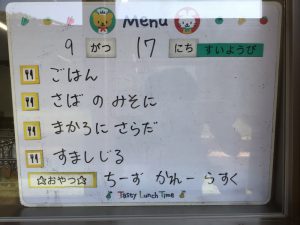 Menu
9 がつ 17 にち すいようび
ごはん
さば の みそに
まかろに さらだ
すましじる
☆おやつ☆ ちーず かれー らすく
Tasty Lunch Time